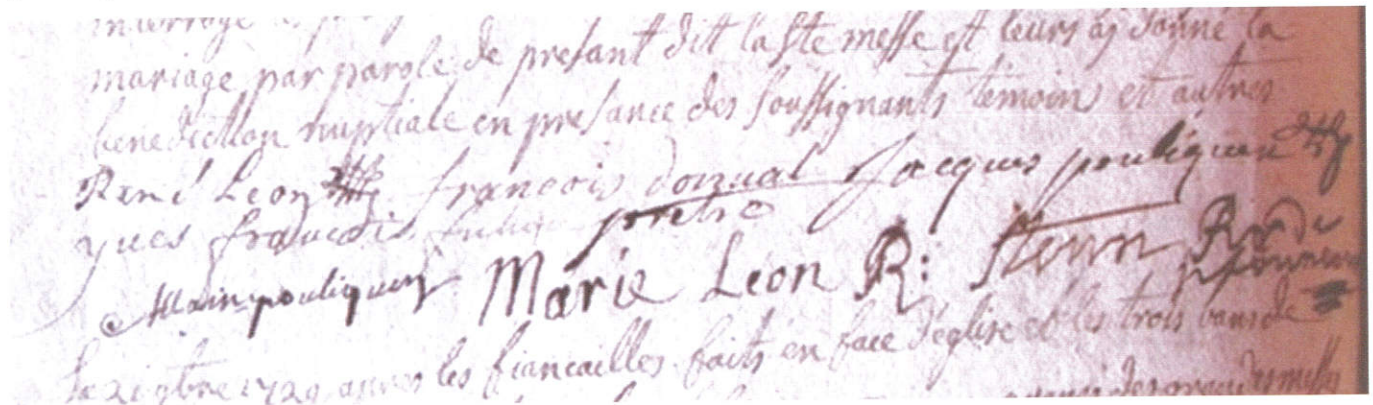 mariage par parole de presant dit la Ste messe et leurs aj donné la
benediction nuptiale en presance des soussignants temoins et autres
René Leon francois donual Jacques pouliquen
yves francois pretre
Allain pouliquen Marie Leon R: Rr de
1729 apres les fiancailles faits en face d'eglise et les trois bans de